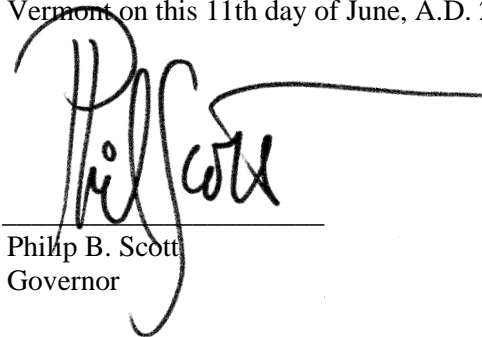 Vermont on this 11th day of June, A.D. 2
Phil Scott
Philip B. Scott
Governor